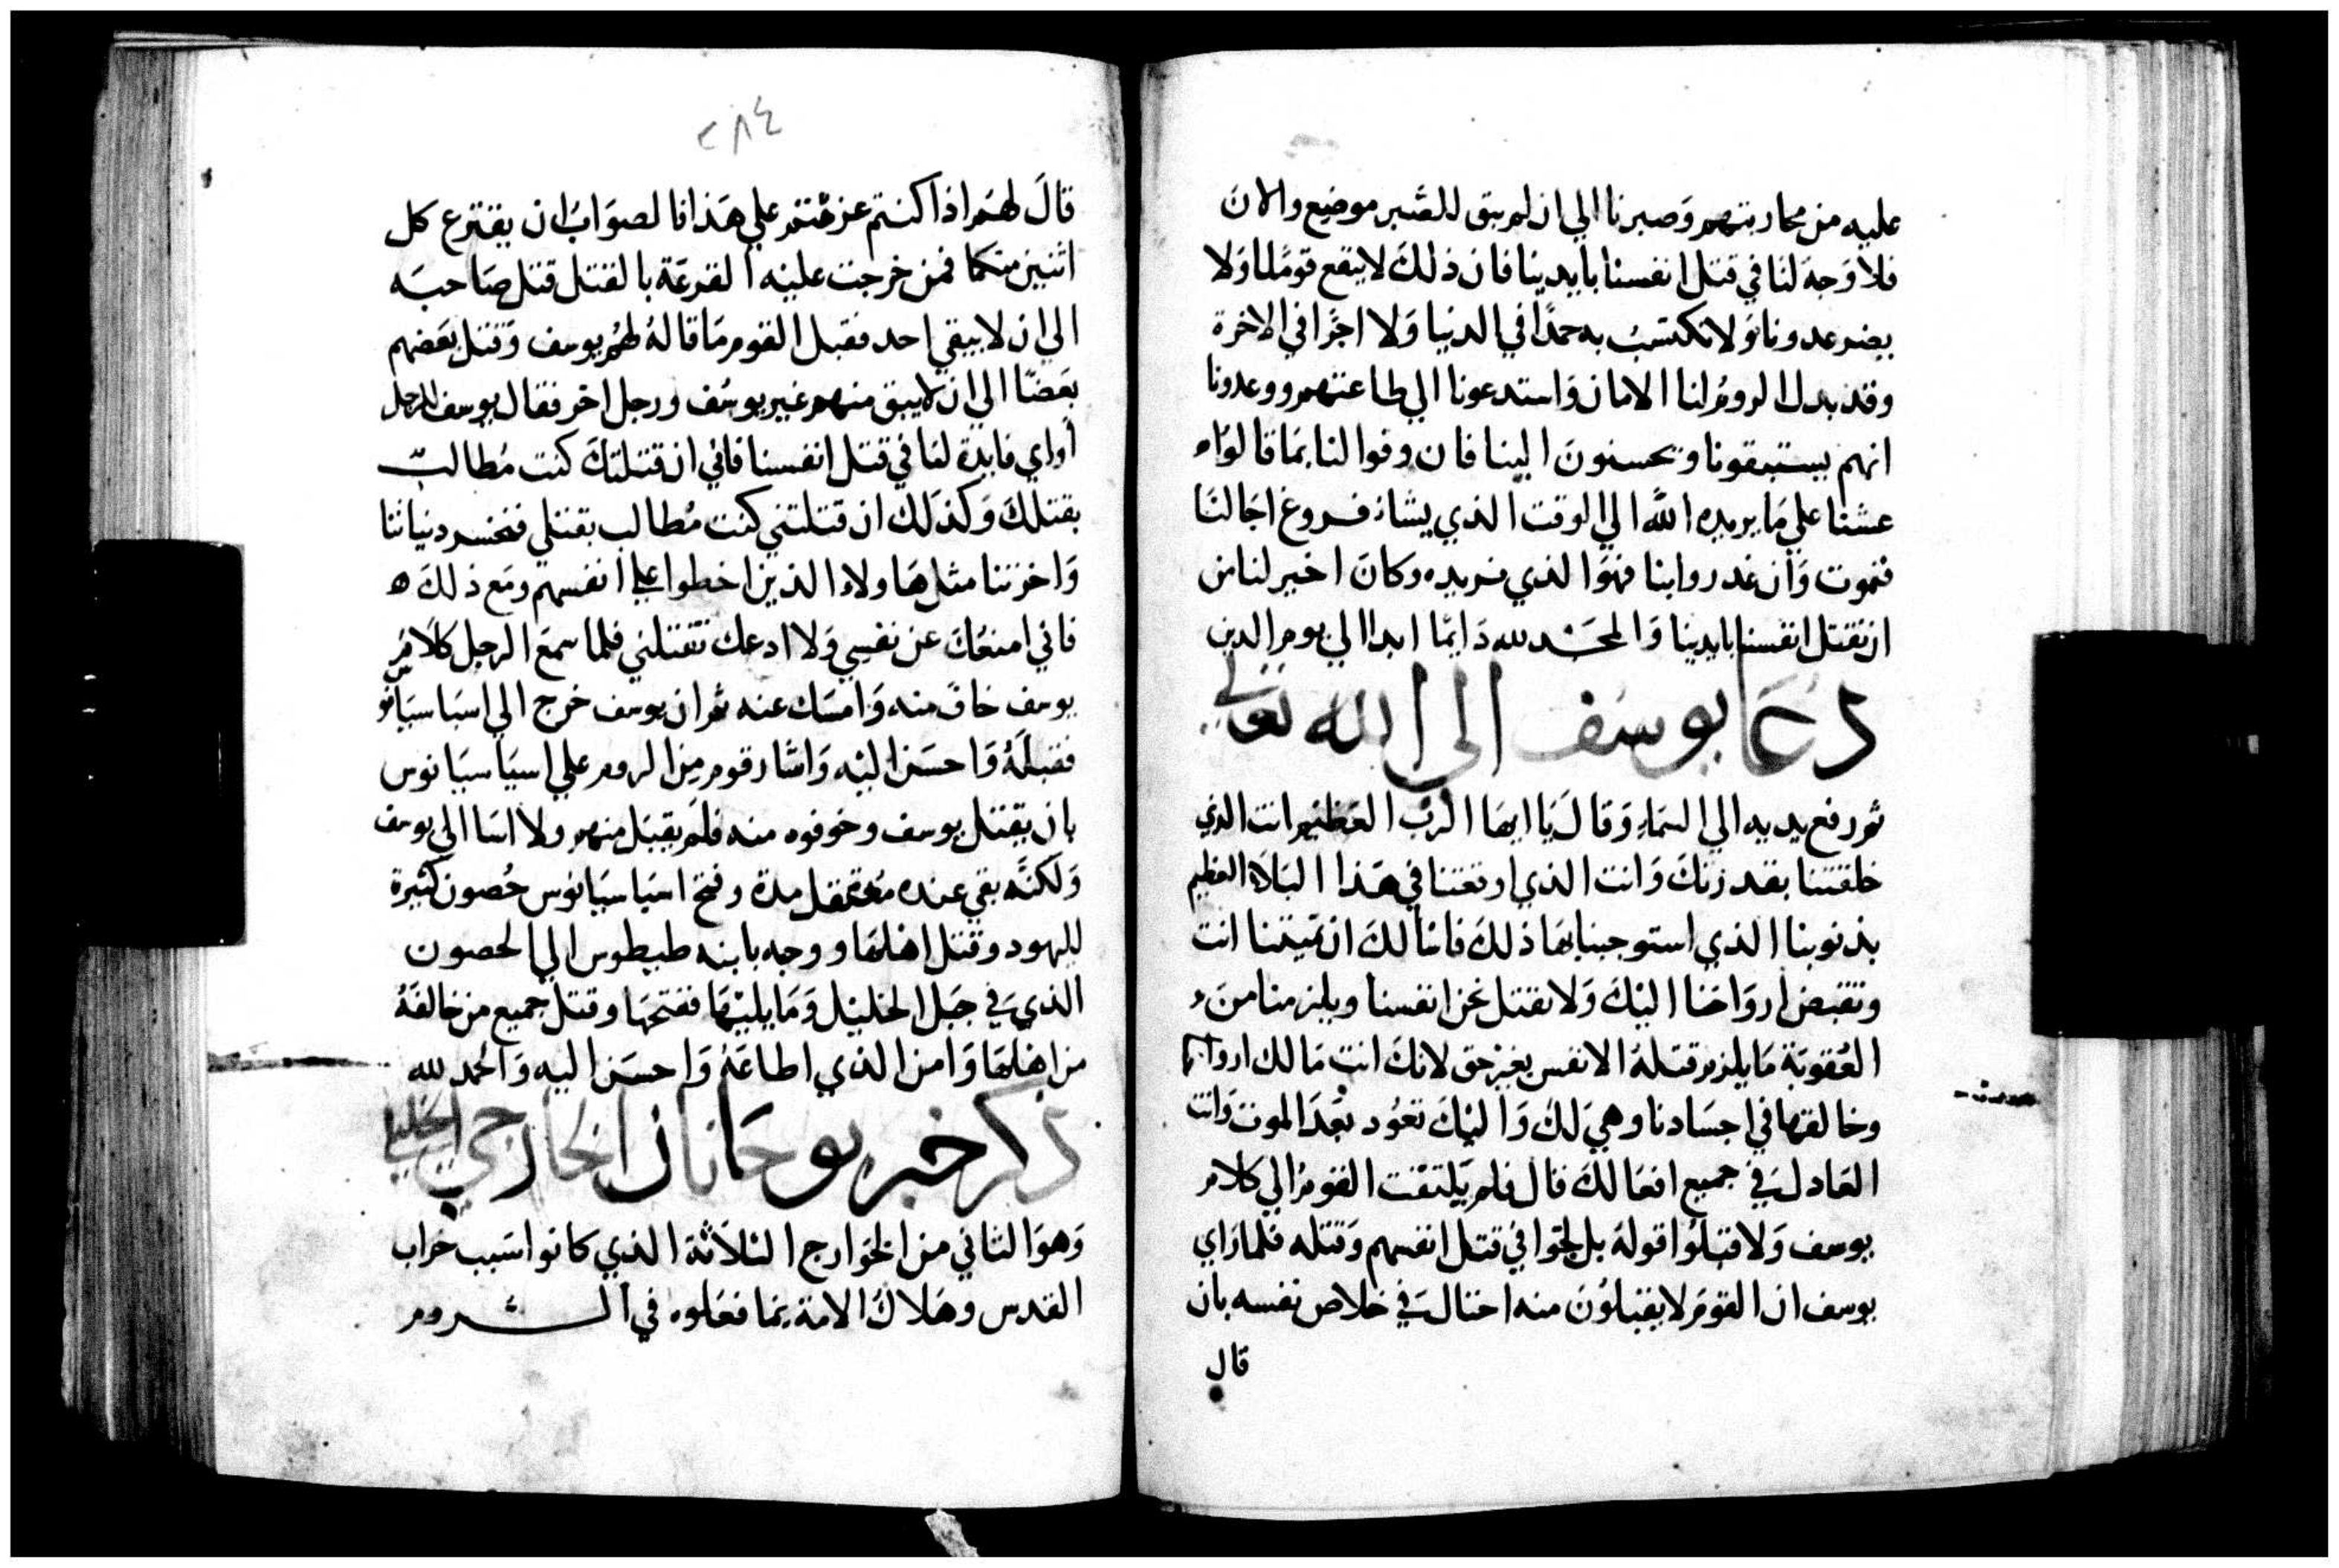 عليه من محاربتهم وَصبرنا الي ان لم يبق للصّبر موضع والان
فلا وَجهَ لنا في قتل انفسنا بايدينا فان ذلكَ لا ينفع قومًنا وَلا
يضر عدونا وَلا نكتسبُ به حمدًا في الدنيا وَلا اجرًا في الاخرة
وقد بدل الرومُ لنا الامان وَاستدعونا الي طاعتهم ووعدونا
انهم يستبقونا ويحسنونَ الينا فان وفوا لنا بمَا قالوَاه
عشنا علي مَا يريده اللّه الي الوقت الذي يشا فروغ اجَالنَا
فنموت وَان غدروا بنا فهوَ الذي نريده وكانَ اخير لنا من
ان نقتل انفسنا بايدينا وَالمجَد لله دَايمًا ابدا الي يوم الدين
دُعَا يوسُف الى الله تعالي
ثم رفع يديه الي السّمَاءِ وَقَالَ يَا ايهَا الربّ العَظيم انت الذي
خلقتنا بقدرتكَ وَانت الذي اوقعتنا في هَذا البَلاءِ العظيم
بذنوبنا الذي استوجبنا بهَا ذلكَ فانا نسالكَ ان تميتنا انت
وتقبض اروَاحَنا اليْكَ وَلا نقتل نحن انفسنا ويلزمنا منَ
العُقوبَة مَا يلزم قتلة الانفس بغير حق لانكَ انت مَالك ارواحنا
وخالقها في اجسَادنا وهيَ لكَ وَاليْكَ تعوُد بعْدَ الموت وَانت
العَادل فيَ جميع افعَالكَ قال فلم يَلتفت القومُ الي كلام
يوسف وَلا قبلوُا قولهُ بل لجّوا في قتل انفسهم وَقتله فلما رَاي
يوسف ان القومَ لا يقبلوُنَ منه احتالَ فيَ خلاص نفسه بان
قال
٢٨٤
قالَ لهُم اذا كنتم عزمْتم علي هَذا فالصوَابُ ان يقترع كل
اثنين منكما فمن خرجت عليْه القرعَة بالقتل قتل صَاحبَه
الي ان لا يبقي احد فقبل القوم مَا قالهُ لهُم يوسف وَقتل بعَضهم
بعَضًا الي ان لا يبق منهم غير يوسُف ورجل اخر فقال يوسف للرجل
أوأي فايدة لنَا في قتل انفسنا فاني ان قتلتكَ كنت مُطالبّ
بقتلكَ وَكذلكَ ان قتلتني كنت مُطالب بقتلي فنخسر دنياتنا
وَاخرتنا مثل هَاولاء الذين اخطوا علي انفسهم ومَع ذلكَ ه
فاني امنعُكَ عن نفسِي وَلا ادعك تقتلني فلما سمعَ الرجل كلَامُ
يوسف خافَ منه وَامسَك عنه ثم ان يوسف خرج الي اسبَا سيَانوس
فقبلهُ وَاحسَن اليْه وَاشار قوم منَ الروم علي اسبَاسيَانوس
بان يقتل يوسف وخوفوه منه فلَم يقبَل منهم ولا اسَا الي يوسف
وَلكنّه بقي عنده مُعتقل مدة وفتح اسبَاسيَانوس حُصون كثيرة
لليهود وقتل اهْلهَا ووجه بابنه طيطوس الي الحصون
الذي فيَ جبَل الخليْل وَمَا يليْهَا ففتحهَا وقتل جميع من خالفَهُ
من اهْلهَا وَامن الذي اطاعَهُ وَاحسَن اليه وَالحمد لله
ذكر خبر يوحَانان الخارجي الجليلي
وَهوَ الثاني من الخوَارج الثلاَثة الذي كانوا سَبب خراب
القدس وهَلاكَ الامة بمَا فعَلوه في الشروم